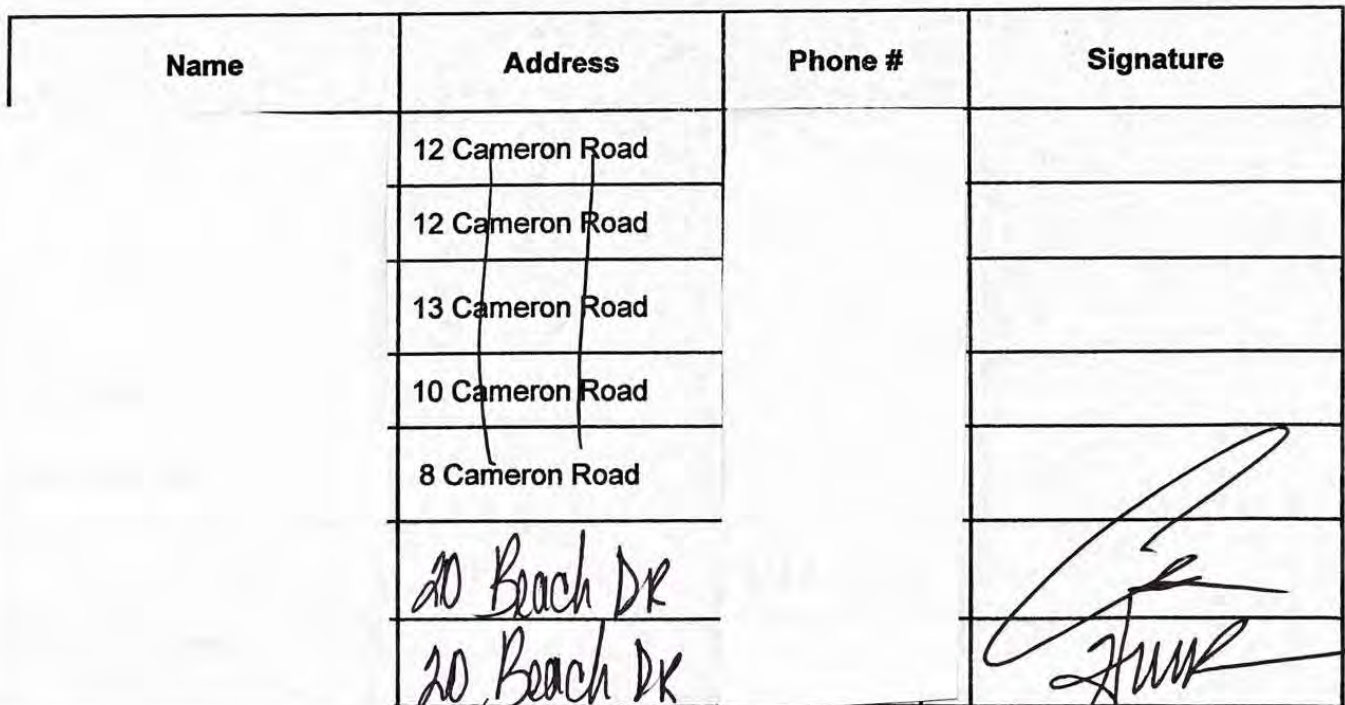 Name Address Phone # Signature
12 Cameron Road
12 Cameron Road
13 Cameron Road
10 Cameron Road
8 Cameron Road
20 Beach DR
20 Beach DR